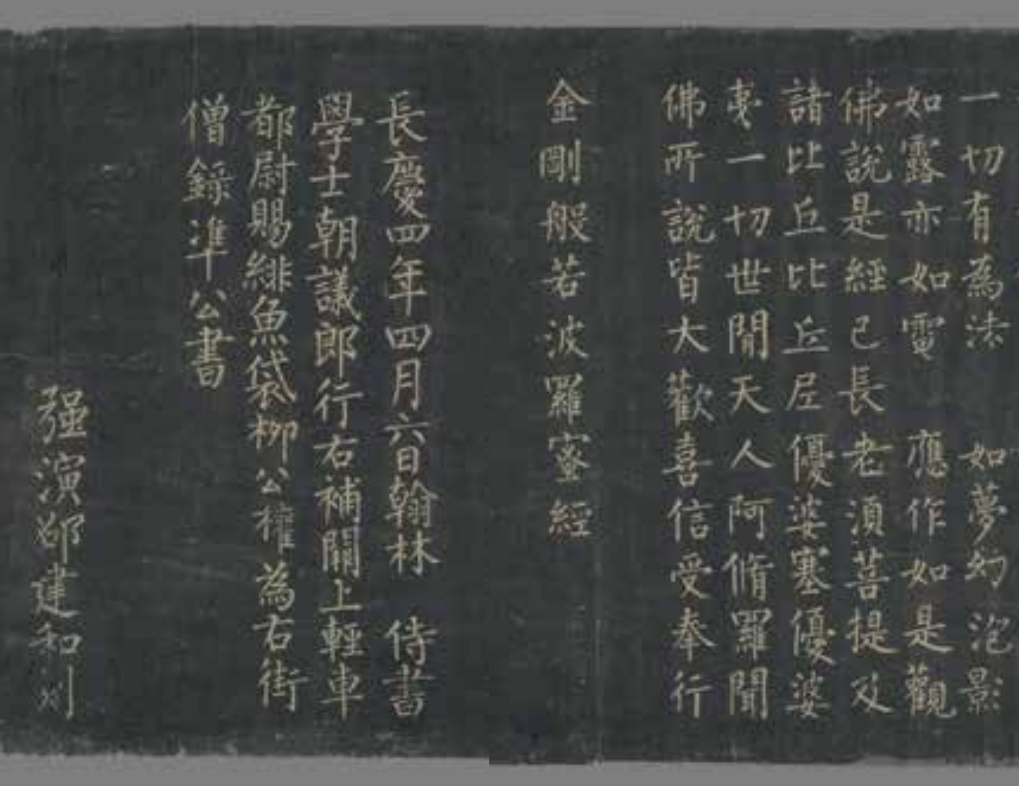 一切有為法　如夢幻泡影
如露亦如電　應作如是觀
佛說是經已長老須菩提及
諸比丘比丘尼優婆塞優婆
夷一切世閒天人阿脩羅聞
佛所說皆大歡喜信受奉行
金剛般若波羅蜜經
長慶四年四月六日翰林　侍書
學士朝議郎行右補闕上輕車
都尉賜緋魚袋柳公權為右街
僧錄準公書
强演邵建和刻